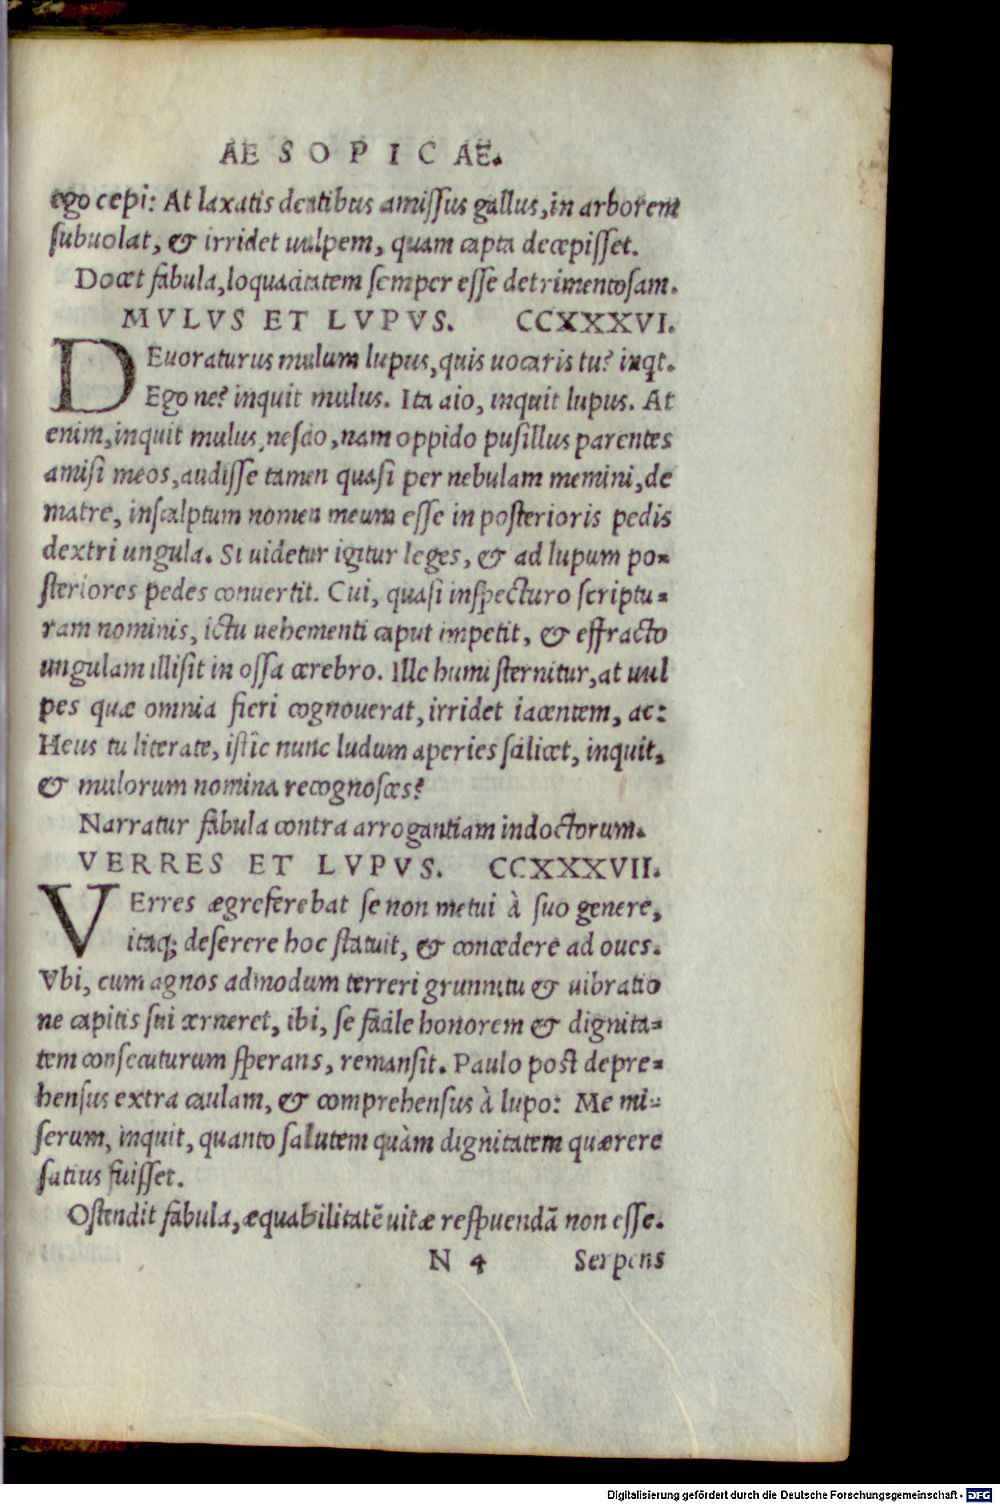 AE S O P I C AE.
ego cepi: At laxatis dentibus amissus gallus, in arborem
subuolat, & irridet uulpem, quam capta decepisset.
Docet fabula, loquacitatem semper esse detrimentosam.
MVLVS ET LVPVS. CCXXXVI.
DEuoraturus mulum lupus, quis uocaris tu? inqt.
Ego ne? inquit mulus. Ita aio, inquit lupus. At
enim, inquit mulus, nescio, nam oppido pusillus parentes
amisi meos, audisse tamen quasi per nebulam memini, de
matre, inscalptum nomen meum esse in posterioris pedis
dextri ungula. Si uidetur igitur leges, & ad lupum po-
steriores pedes conuertit. Cui, quasi inspecturo scriptu-
ram nominis, ictu uehementi caput impetit, & effracto
ungulam illisit in ossa cerebro. Ille humi sternitur, at uul
pes quæ omnia fieri cognouerat, irridet iacentem, ac:
Heus tu literate, istic nunc ludum aperies scilicet, inquit,
& mulorum nomina recognosces?
Narratur fabula contra arrogantiam indoctorum.
VERRES ET LVPVS. CCXXXVII.
VErres ægre ferebat se non metui à suo genere,
itaq; deserere hoc statuit, & concedere ad oues.
Vbi, cum agnos admodum terreri grunnitu & uibratio
ne capitis sui cerneret, ibi, se facile honorem & dignita-
tem consecuturum sperans, remansit. Paulo post depre-
hensus extra caulam, & comprehensus à lupo: Me mi-
serum, inquit, quanto salutem quàm dignitatem quærere
satius fuisset.
Ostendit fabula, æquabilitatē uitæ respuendā non esse.
N 4 Serpens
Digitalisierung gefördert durch die Deutsche Forschungsgemeinschaft - DFG